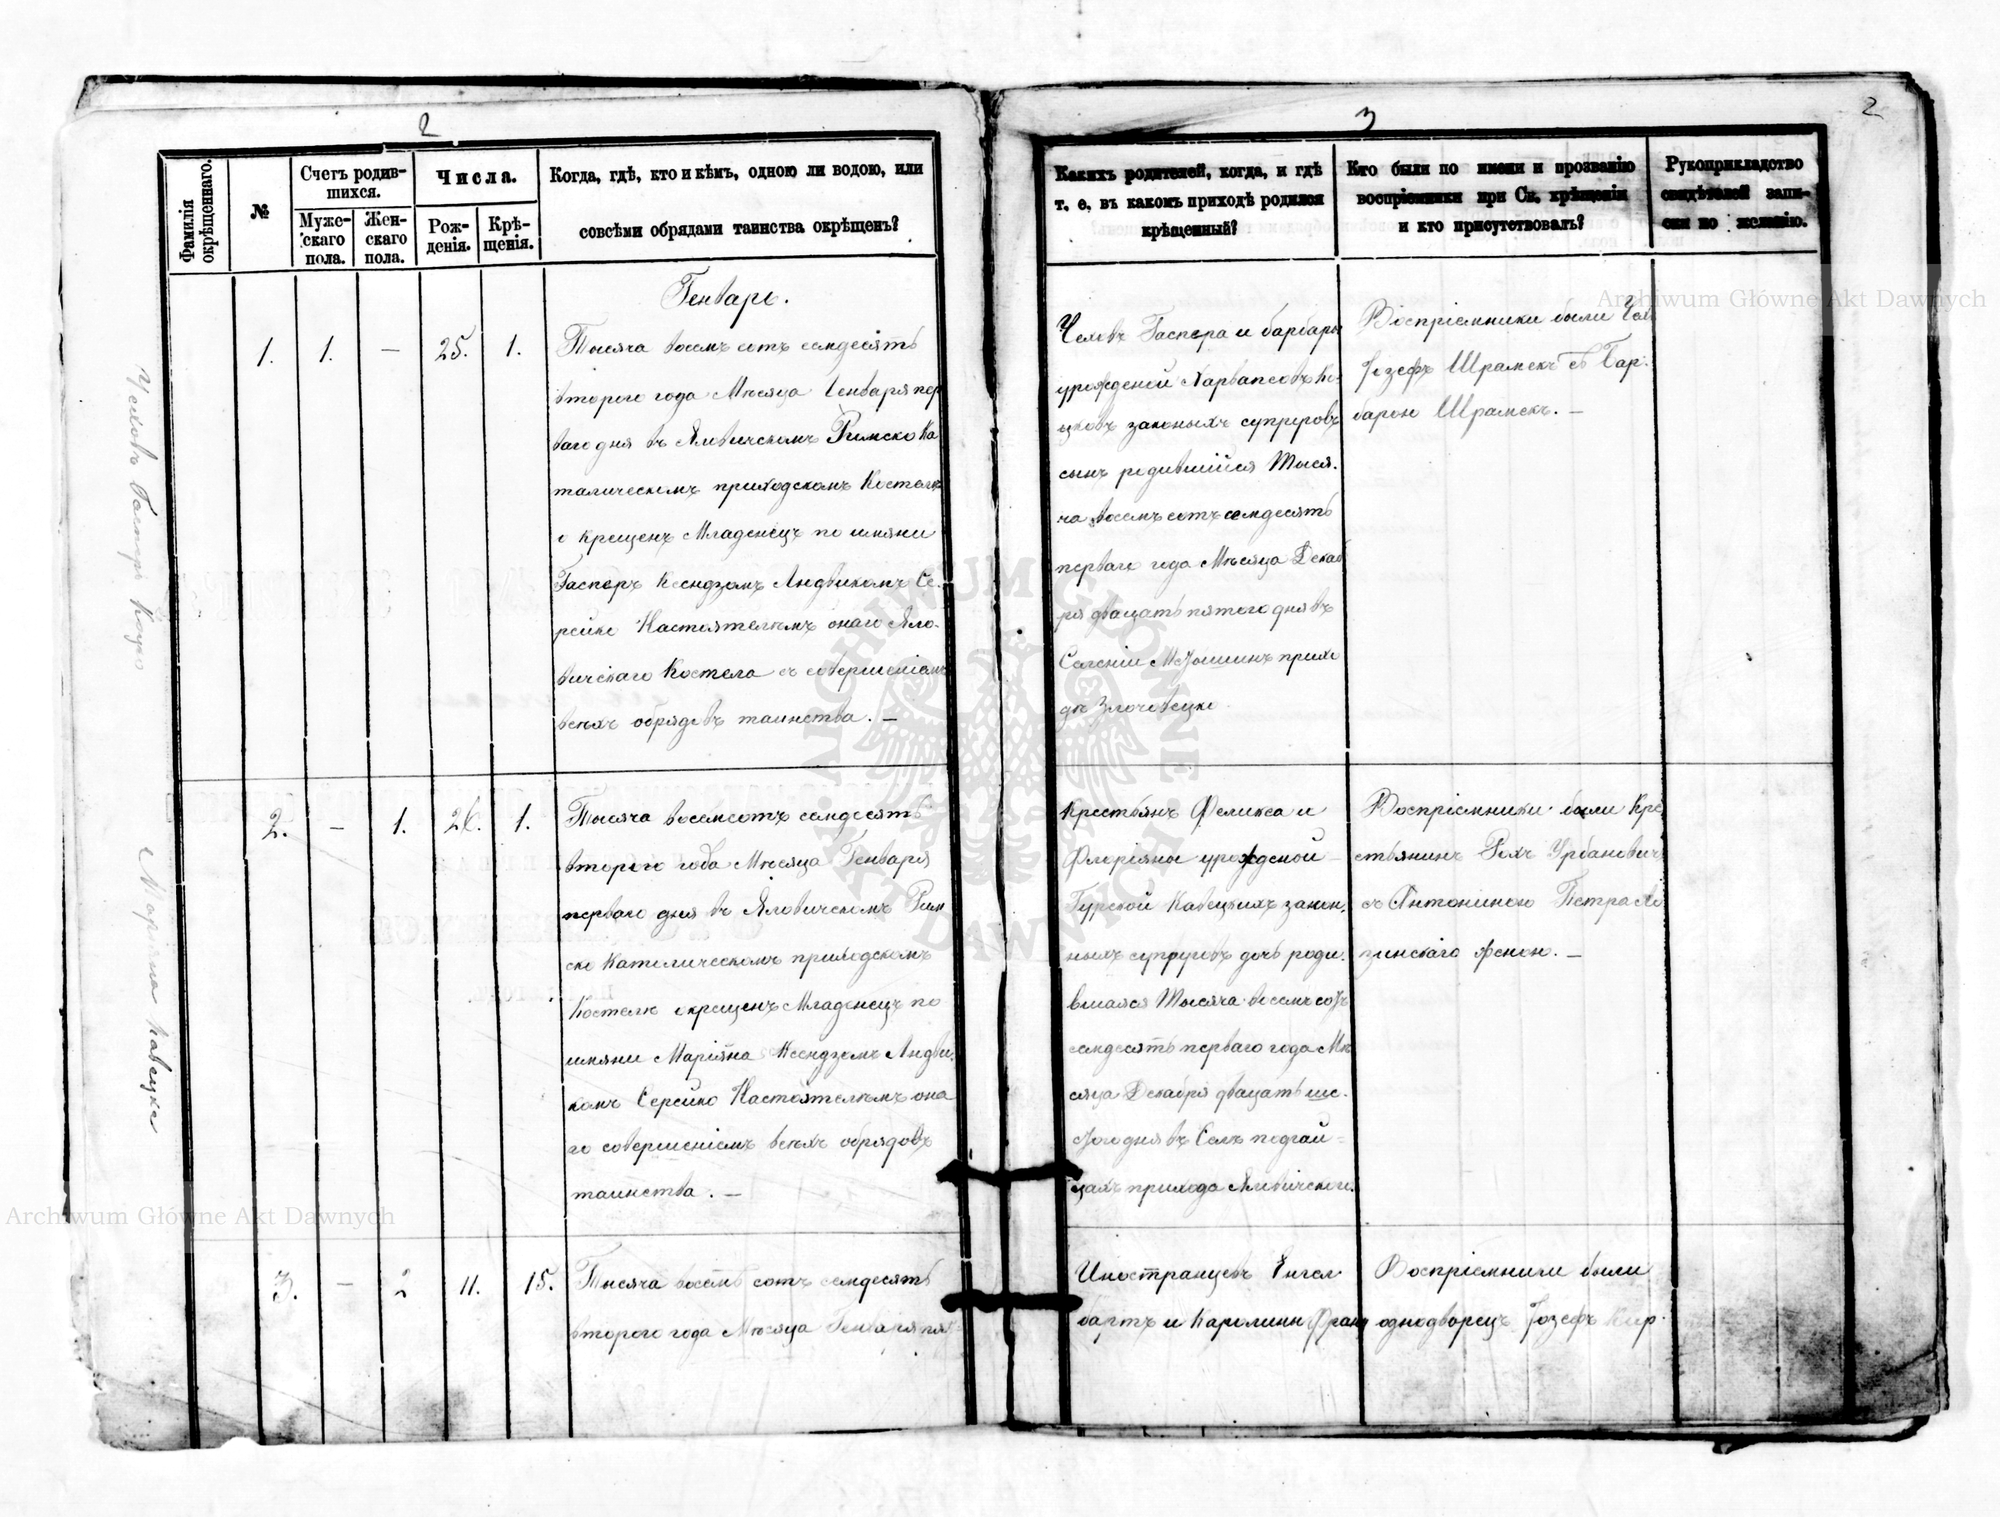 2
Фамилія окрѣщеннаго.
№
Счетъ родив-
шихся.
Муже-
скаго
пола.
Жен-
скаго
пола.
Числа.
Рож-
денія.
Крѣ-
щенія.
Когда, гдѣ, кто и кѣмъ, одною ли водою, или
совсѣми обрядами таинства окрѣщенъ?
Генварь.
1. 1. — 25. 1.
Тысяча восемъ сотъ семдесятъ
втораго года Мѣсяца Генваря пер
ваго дня въ Яловичскомъ Римско Ка
толическомъ приходскомъ Костелѣ
о крещенъ Младенецъ по имяни
Гасперъ Ксендзомъ Людвикомъ Се-
рейко Настоятелѣмъ онаго Яло-
вичскаго Костела съ совершеніемъ
всѣхъ обрядовъ таинства. —
2. — 1. 26. 1.
Тысяча восемсотъ семдесятъ
втораго года Мѣсяца Генваря
перваго дня въ Яловичскомъ Рим
ско Католическомъ приходскомъ
Костелѣ окрещенъ Младенецъ по
имяни Маріяна Ксендзомъ Людви-
комъ Серейко Настоятелѣмъ она
го совершеніемъ всѣхъ обрядовъ
таинства. —
3. — 2 11. 15.
Тысяча восемь сотъ семдесятъ
втораго года Мѣсяца Генваря пят
Маріяна Кавецка
3
2
Какихъ родителей, когда, и гдѣ
т. е. въ какомъ приходѣ родился
крѣщенный?
Кто были по имени и прозванію
воспріемники при Св. крѣщеніи
и кто присутствовалъ?
Рукоприкладство
свидѣтелей запи-
ски по желанію.
Чеховъ Гаспера и барбары
урожденой
законыхъ супруговъ
сынъ родившійся Тыся-
ча восемъ сотъ семдесятъ
перваго года Мѣсяца Декаб
ря двацать пятого дня въ
прихо
дѣ
Воспріемники были Чех
Іозефъ Шрамекъ съ Бар-
барою Шрамекъ. —
Крестьянъ Феликса и
Флоріяны урожденой
Гурской Кавецкихъ закон-
ныхъ супруговъ дочь роди-
вшаяся Тысяча восемъ сотъ
семдесятъ перваго года Мѣ
сяца Декабря двацать ше-
стого дня въ Селѣ подгай-
цахъ прихода Яловичскаго.
Воспріемники были Кре
стьянинъ Рохъ Урбановичъ
съ Антониною Петра Ло
зинскаго женою. —
Иностранцевъ Енгел-
бартъ и Каролины Франц
Воспріемники были
однодворецъ Іозефъ Кир-
Archiwum Główne Akt Dawnych
Archiwum Główne Akt Dawnych
ARCHIWUM GŁÓWNE
AKT DAWNYCH